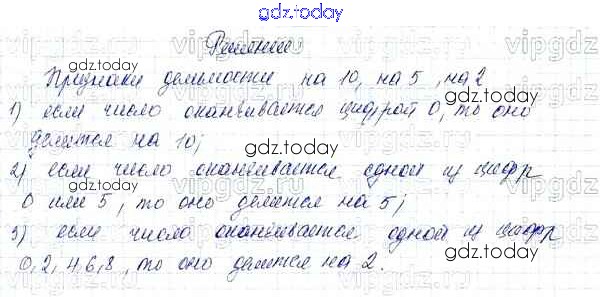 gdz.today
Решение:
Признаки делимости на 10, на 5, на 2
1) если число оканчивается цифрой 0, то оно
делится на 10;
2) если число оканчивается одной из цифр
0 или 5, то оно делится на 5;
3) если число оканчивается одной из цифр
0, 2, 4, 6, 8, то оно делится на 2.
gdz.today